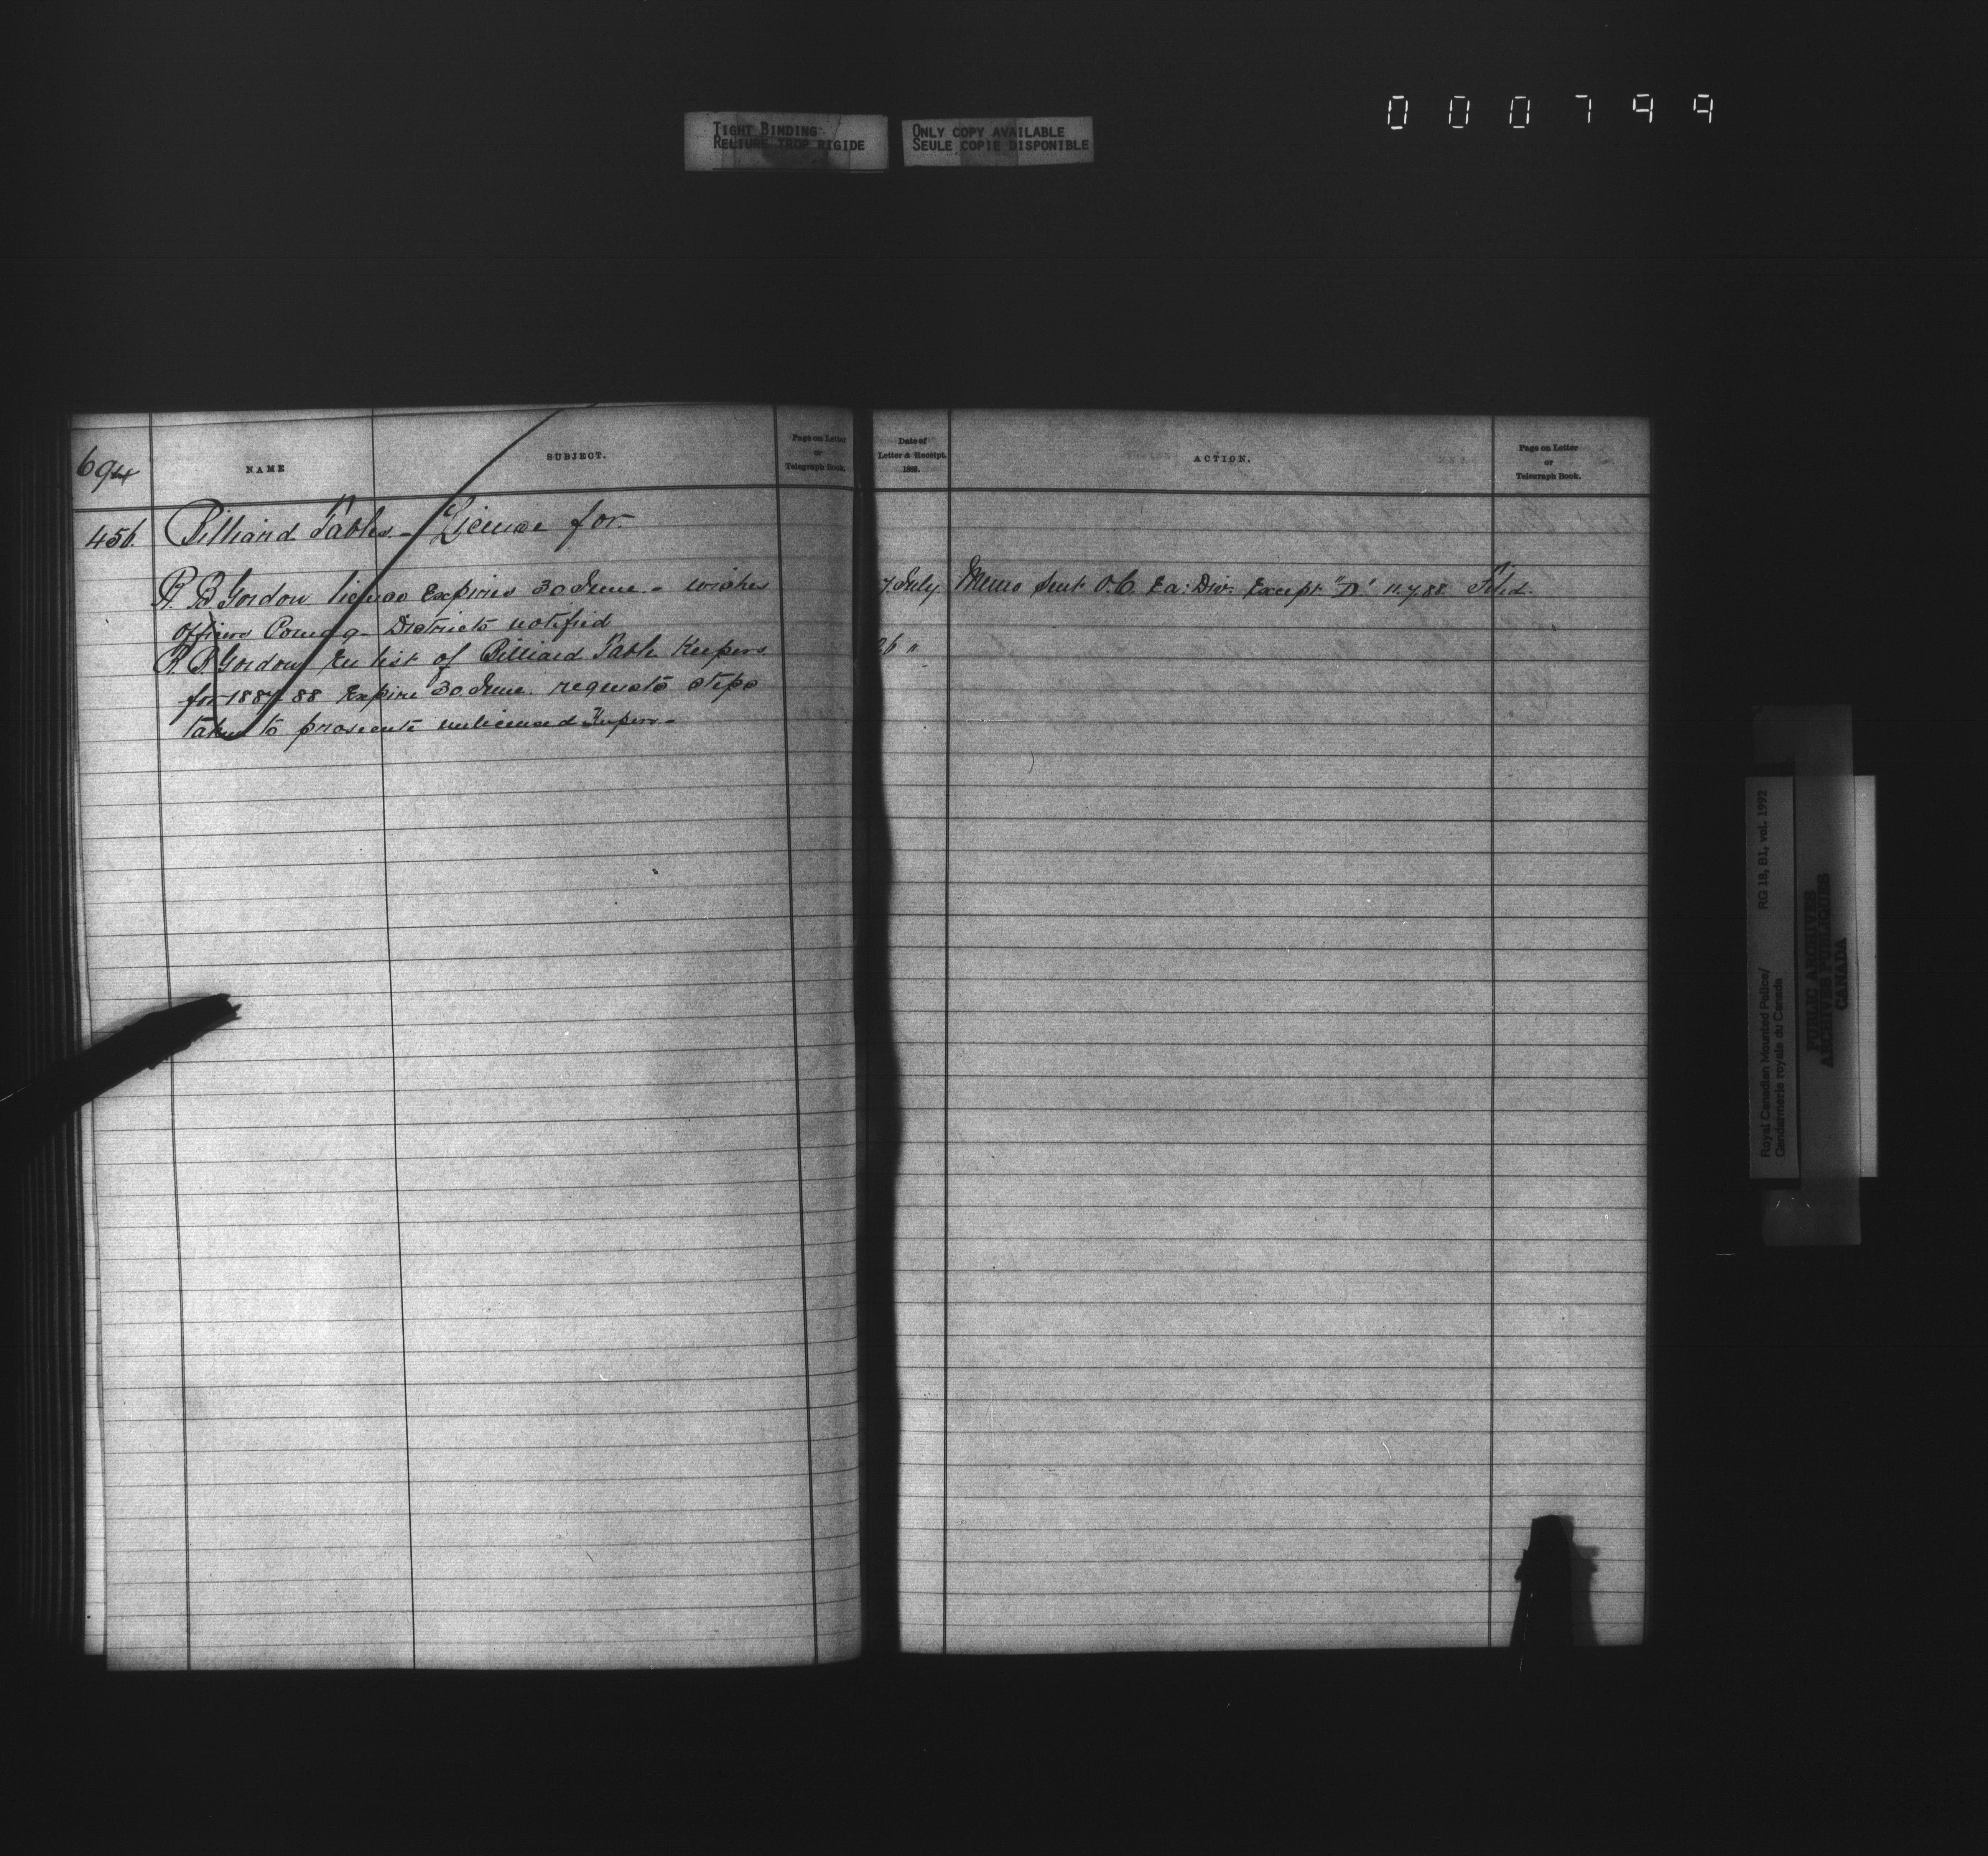 000799
TIGHT BINDING
RELIURE TROP RIGIDE
ONLY COPY AVAILABLE
SEULE COPIE DISPONIBLE
NAME
SUBJECT.
Page on Letter
or
Telegraph Book.
456. Billiard Tables - License for.
R. B Gordon license Expires 30 June. - wishes
Officers Comdg - Districts notified
R. B Gordon En list of Billiard Table Keepers
for 1887/88 Expire 30 June. requests steps
taken to prosecute unlicensed Keepers -
Date of
Letter & Receipt.
188 .
ACTION.
Page on Letter
or
Telegraph Book.
7 July Memo sent O.C. Ea: Div: Except "D" 11.7.88 Filed.
26 "
Royal Canadian Mounted Police/ RG 18, B1, vol. 1992
Gendarmerie royale du Canada
PUBLIC ARCHIVES
ARCHIVES PUBLIQUES
CANADA